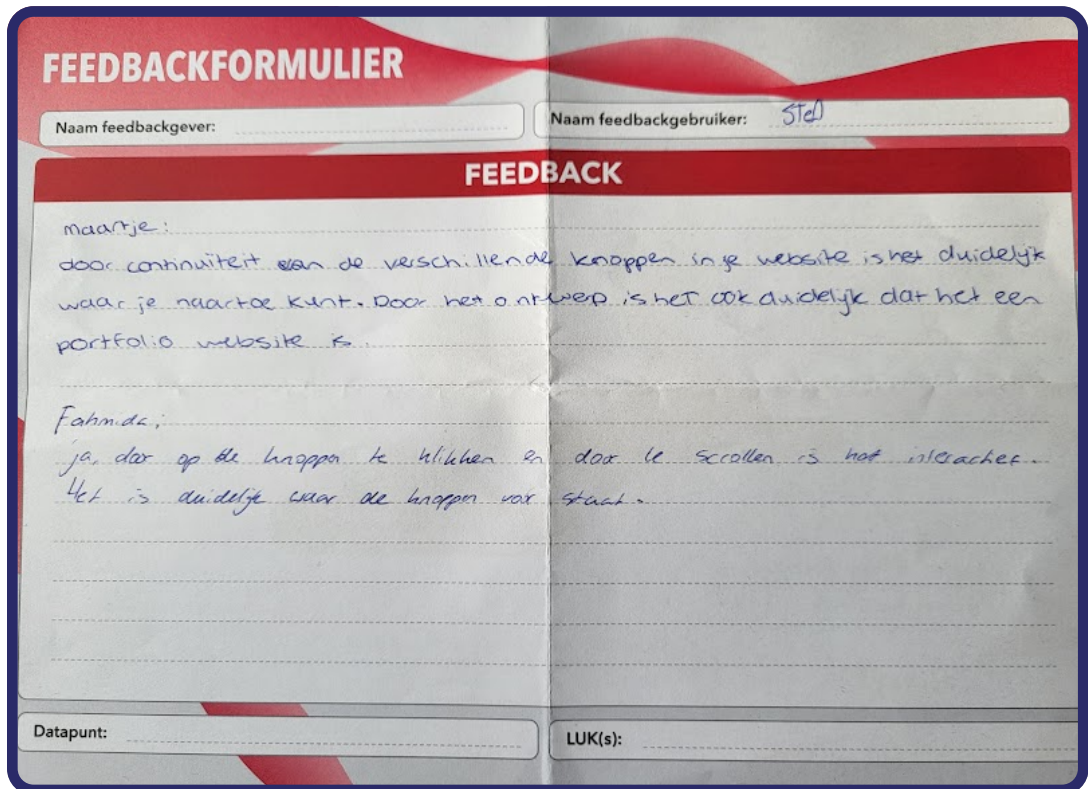 FEEDBACKFORMULIER
Naam feedbackgever:
Naam feedbackgebruiker:
FEEDBACK
maartje:
door continuïteit van de verschillende knoppen in je website is het duidelijk
waar je naartoe kunt. Door het ontwerp is het ook duidelijk dat het een
portfolio website is.
Fahmida;
ja, door op de knoppen te klikken en door te scrollen is het
Het is duidelijk waar de knoppen voor staat.
Datapunt:
LUK(s):